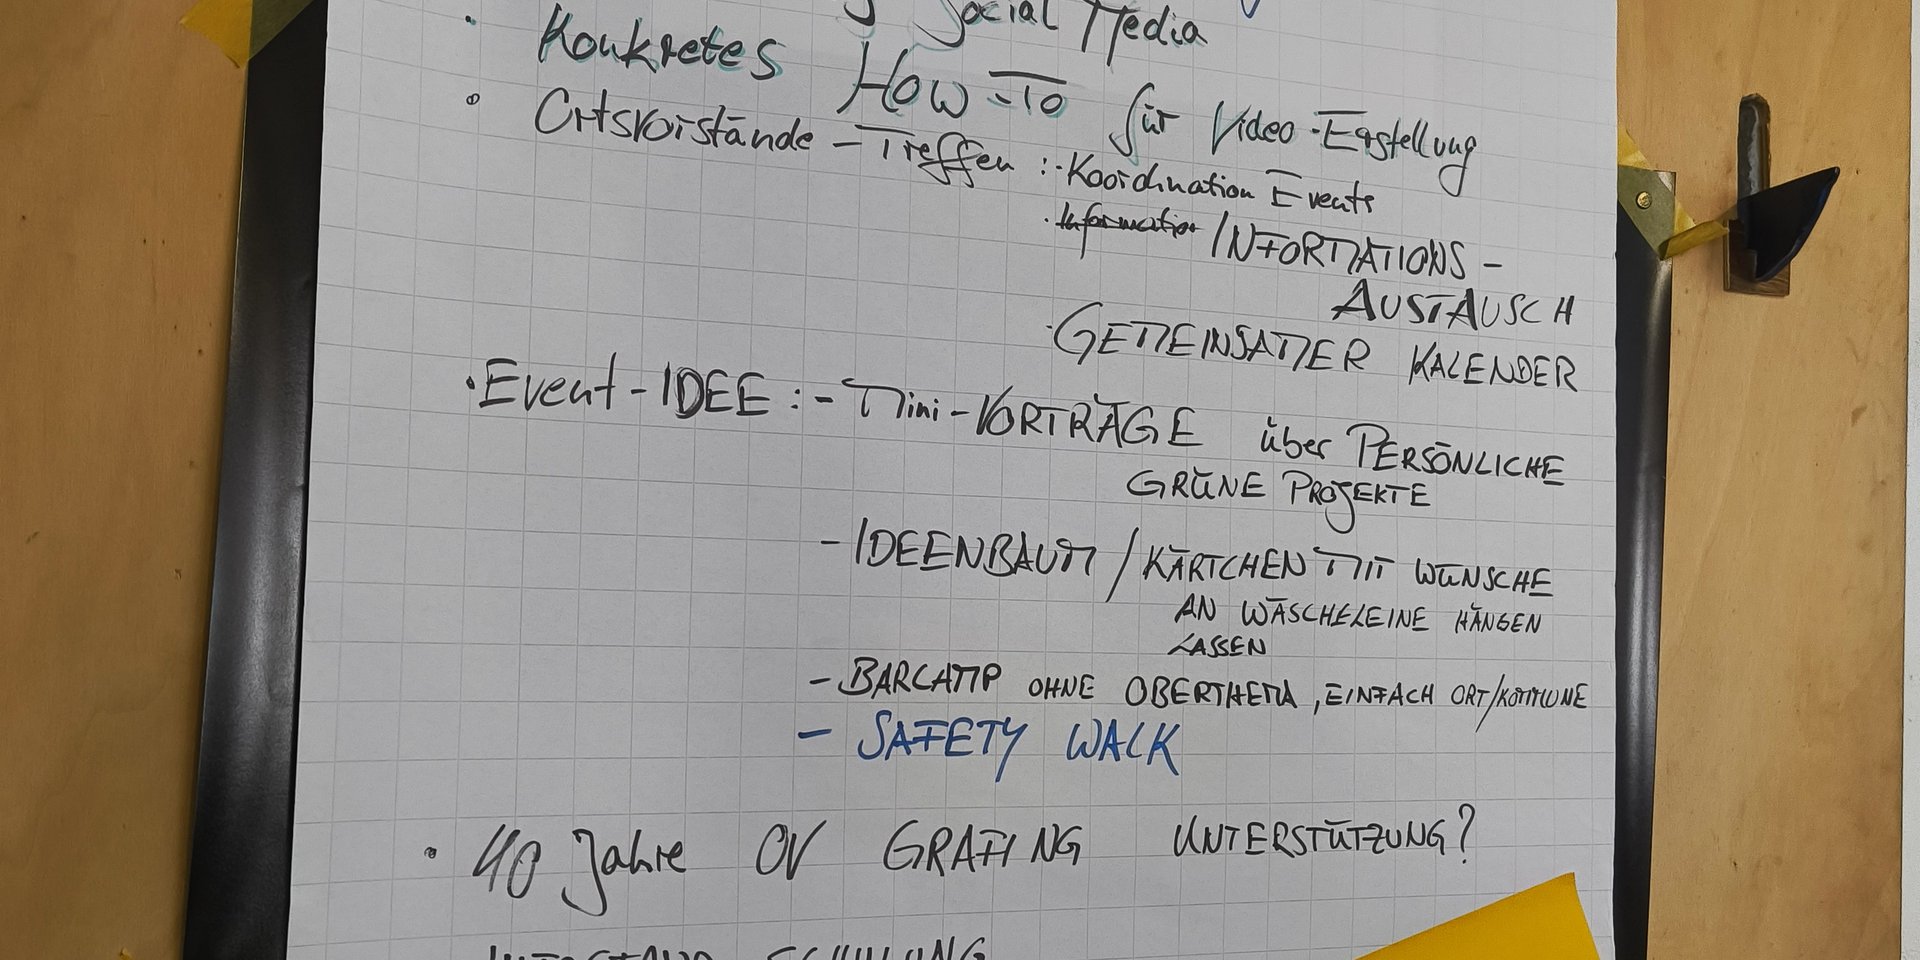 Social Media
• Konkretes How-To für Video-Erstellung
• Ortsvorstände-Treffen: · Koordination Events
· Information INFORMATIONS-
AUSTAUSCH
· GEMEINSAMER KALENDER
• Event-IDEE: - Mini-VORTRÄGE über PERSÖNLICHE
GRÜNE PROJEKTE
- IDEENBAUM / KÄRTCHEN MIT WÜNSCHE
AN WÄSCHELEINE HÄNGEN
LASSEN
- BARCAMP OHNE OBERTHEMA, EINFACH ORT/KOMMUNE
- SAFETY WALK
• 40 Jahre OV GRAFING UNTERSTÜTZUNG?
INFOSTAND SCHULUNG